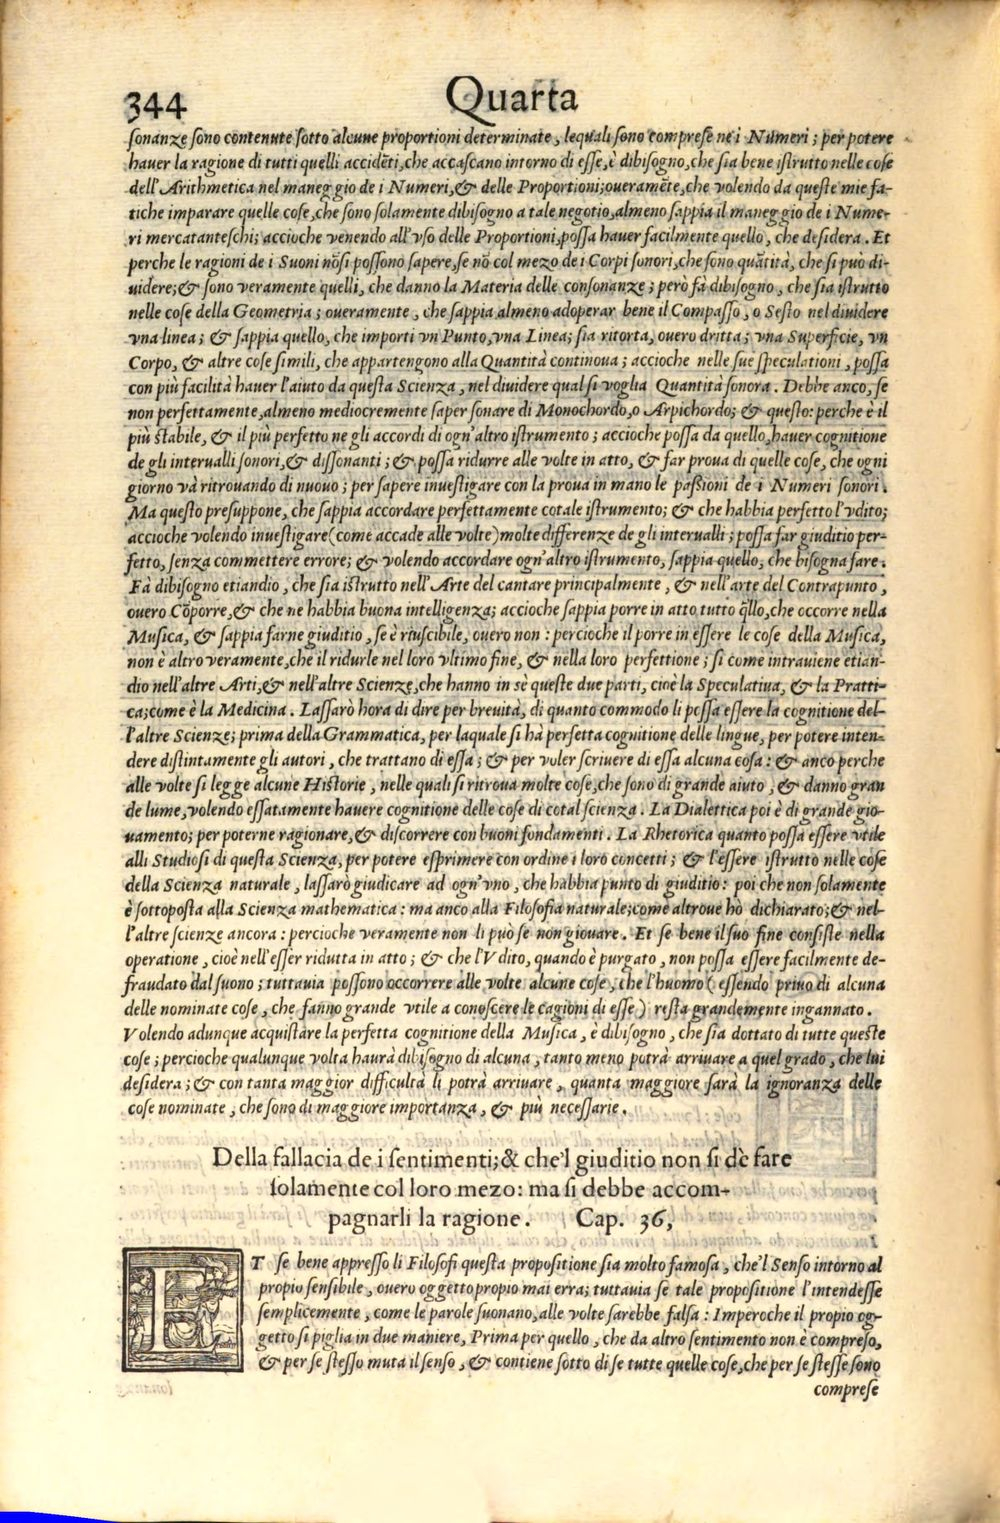 344 Quarta
ſonanze ſono contenute ſotto alcune proportioni determinate, lequali ſono compreſe ne i Numeri; per potere
hauer la ragione di tutti quelli accidẽti, che accaſcano intorno di eſſe, è dibiſogno, che ſia bene iſtrutto nelle coſe
dell'Arithmetica nel maneggio de i Numeri, & delle Proportioni; oueramẽte, che volendo da queſte mie fa-
tiche imparare quelle coſe, che ſono ſolamente dibiſogno a tale negotio, almeno ſappia il maneggio de i Nume-
ri mercatanteſchi; accioche venendo all'vſo delle Proportioni, poſſa hauer facilmente quello, che deſidera. Et
perche le ragioni de i Suoni nõ ſi poſſono ſapere, ſe nõ col mezo de i Corpi ſonori, che ſono quãtità, che ſi può di-
uidere; & ſono veramente quelli, che danno la Materia delle conſonanze; però fà dibiſogno, che ſia iſtrutto
nelle coſe della Geometria; oueramente, che ſappia almeno adoperar bene il Compaſſo, o Seſto nel diuidere
vna linea; & ſappia quello, che importi vn Punto, vna Linea; ſia ritorta, ouero dritta; vna Superficie, vn
Corpo, & altre coſe ſimili, che appartengono alla Quantità continoua; accioche nelle ſue ſpeculationi, poſſa
con più facilità hauer l'aiuto da queſta Scienza, nel diuidere qual ſi voglia Quantità ſonora. Debbe anco, ſe
non perfettamente, almeno mediocremente ſaper ſonare di Monochordo, o Arpichordo; & queſto: perche è il
più ſtabile, & il più perfetto ne gli accordi di ogn'altro iſtrumento; accioche poſſa da quello, hauer cognitione
de gli interualli ſonori, & diſſonanti; & poſſa ridurre alle volte in atto, & far proua di quelle coſe, che ogni
giorno và ritrouando di nuouo; per ſapere inueſtigare con la proua in mano le paſſioni de i Numeri ſonori.
Ma queſto preſuppone, che ſappia accordare perfettamente cotale iſtrumento; & che habbia perfetto l'vdito;
accioche volendo inueſtigare (come accade alle volte) molte differenze de gli interualli; poſſa far giuditio per-
fetto, ſenza commettere errore; & volendo accordare ogn'altro iſtrumento, ſappia quello, che biſogna fare.
Fà dibiſogno etiandio, che ſia iſtrutto nell'Arte del cantare principalmente, & nell'arte del Contrapunto,
ouero Cõporre, & che ne habbia buona intelligenza; accioche ſappia porre in atto tutto q̃llo, che occorre nella
Muſica, & ſappia farne giuditio, ſe è riuſcibile, ouero non: percioche il porre in eſſere le coſe della Muſica,
non è altro veramente, che il ridurle nel loro vltimo fine, & nella loro perfettione; ſi come intrauiene etian-
dio nell'altre Arti, & nell'altre Scienze, che hanno in sè queſte due parti, cioè la Speculatiua, & la Pratti-
ca; come è la Medicina. Laſſarò hora di dire per breuità, di quanto commodo li poſſa eſſere la cognitione del-
l'altre Scienze; prima della Grammatica, per laquale ſi hà perfetta cognitione delle lingue, per potere inten-
dere diſtintamente gli autori, che trattano di eſſa; & per voler ſcriuere di eſſa alcuna coſa: & anco perche
alle volte ſi legge alcune Hiſtorie, nelle quali ſi ritroua molte coſe, che ſono di grande aiuto, & danno gran
de lume, volendo eſſatamente hauere cognitione delle coſe di cotal ſcienza. La Dialettica poi è di grande gio-
uamento; per poterne ragionare, & diſcorrere con buoni fondamenti. La Rhetorica quanto poſſa eſſere vtile
alli Studioſi di queſta Scienza, per potere eſprimere con ordine i loro concetti; & l'eſſere iſtrutto nelle coſe
della Scienza naturale, laſſarò giudicare ad ogn'vno, che habbia punto di giuditio: poi che non ſolamente
è ſottopoſta alla Scienza mathematica: ma anco alla Filoſofia naturale; come altroue hò dichiarato; & nel-
l'altre ſcienze ancora: percioche veramente non li può ſe non giouare. Et ſe bene il ſuo fine conſiſte nella
operatione, cioè nell'eſſer ridutta in atto; & che l'Vdito, quando è purgato, non poſſa eſſere facilmente de-
fraudato dal ſuono; tuttauia poſſono occorrere alle volte alcune coſe, che l'huomo (eſſendo priuo di alcuna
delle nominate coſe, che fanno grande vtile a conoſcere le cagioni di eſſe) reſta grandemente ingannato.
Volendo adunque acquiſtare la perfetta cognitione della Muſica, è dibiſogno, che ſia dottato di tutte queſte
coſe; percioche qualunque volta haurà dibiſogno di alcuna, tanto meno potrà arriuare a quel grado, che lui
deſidera; & con tanta maggior difficultà li potrà arriuare, quanta maggiore ſarà la ignoranza delle
coſe nominate, che ſono di maggiore importanza, & più neceſſarie.
Della fallacia de i ſentimenti; & che'l giuditio non ſi dè fare
ſolamente col loro mezo: ma ſi debbe accom-
pagnarli la ragione. Cap. 36,
ET ſe bene appreſſo li Filoſofi queſta propoſitione ſia molto famoſa, che'l Senſo intorno al
propio ſenſibile, ouero oggetto propio mai erra; tuttauia ſe tale propoſitione l'intendeſſe
ſemplicemente, come le parole ſuonano, alle volte ſarebbe falſa: Imperoche il propio og-
getto ſi piglia in due maniere, Prima per quello, che da altro ſentimento non è compreſo,
& per ſe ſteſſo muta il ſenſo, & contiene ſotto di ſe tutte quelle coſe, che per ſe ſteſſe ſono
compreſe